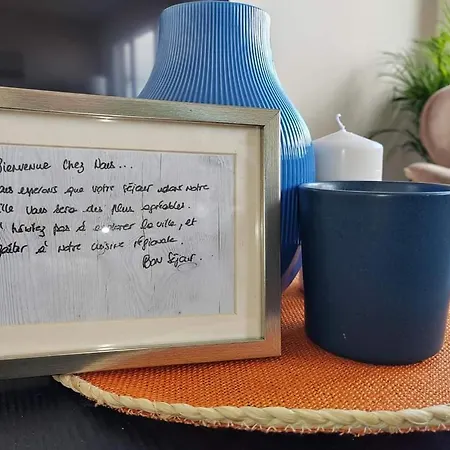 Bienvenue Chez Nous...
ous espérons que votre séjour dans notre
ille vous sera des plus agréables.
hésitez pas à explorer la ville, et
goûter à notre cuisine régionale.
Bon Séjour.